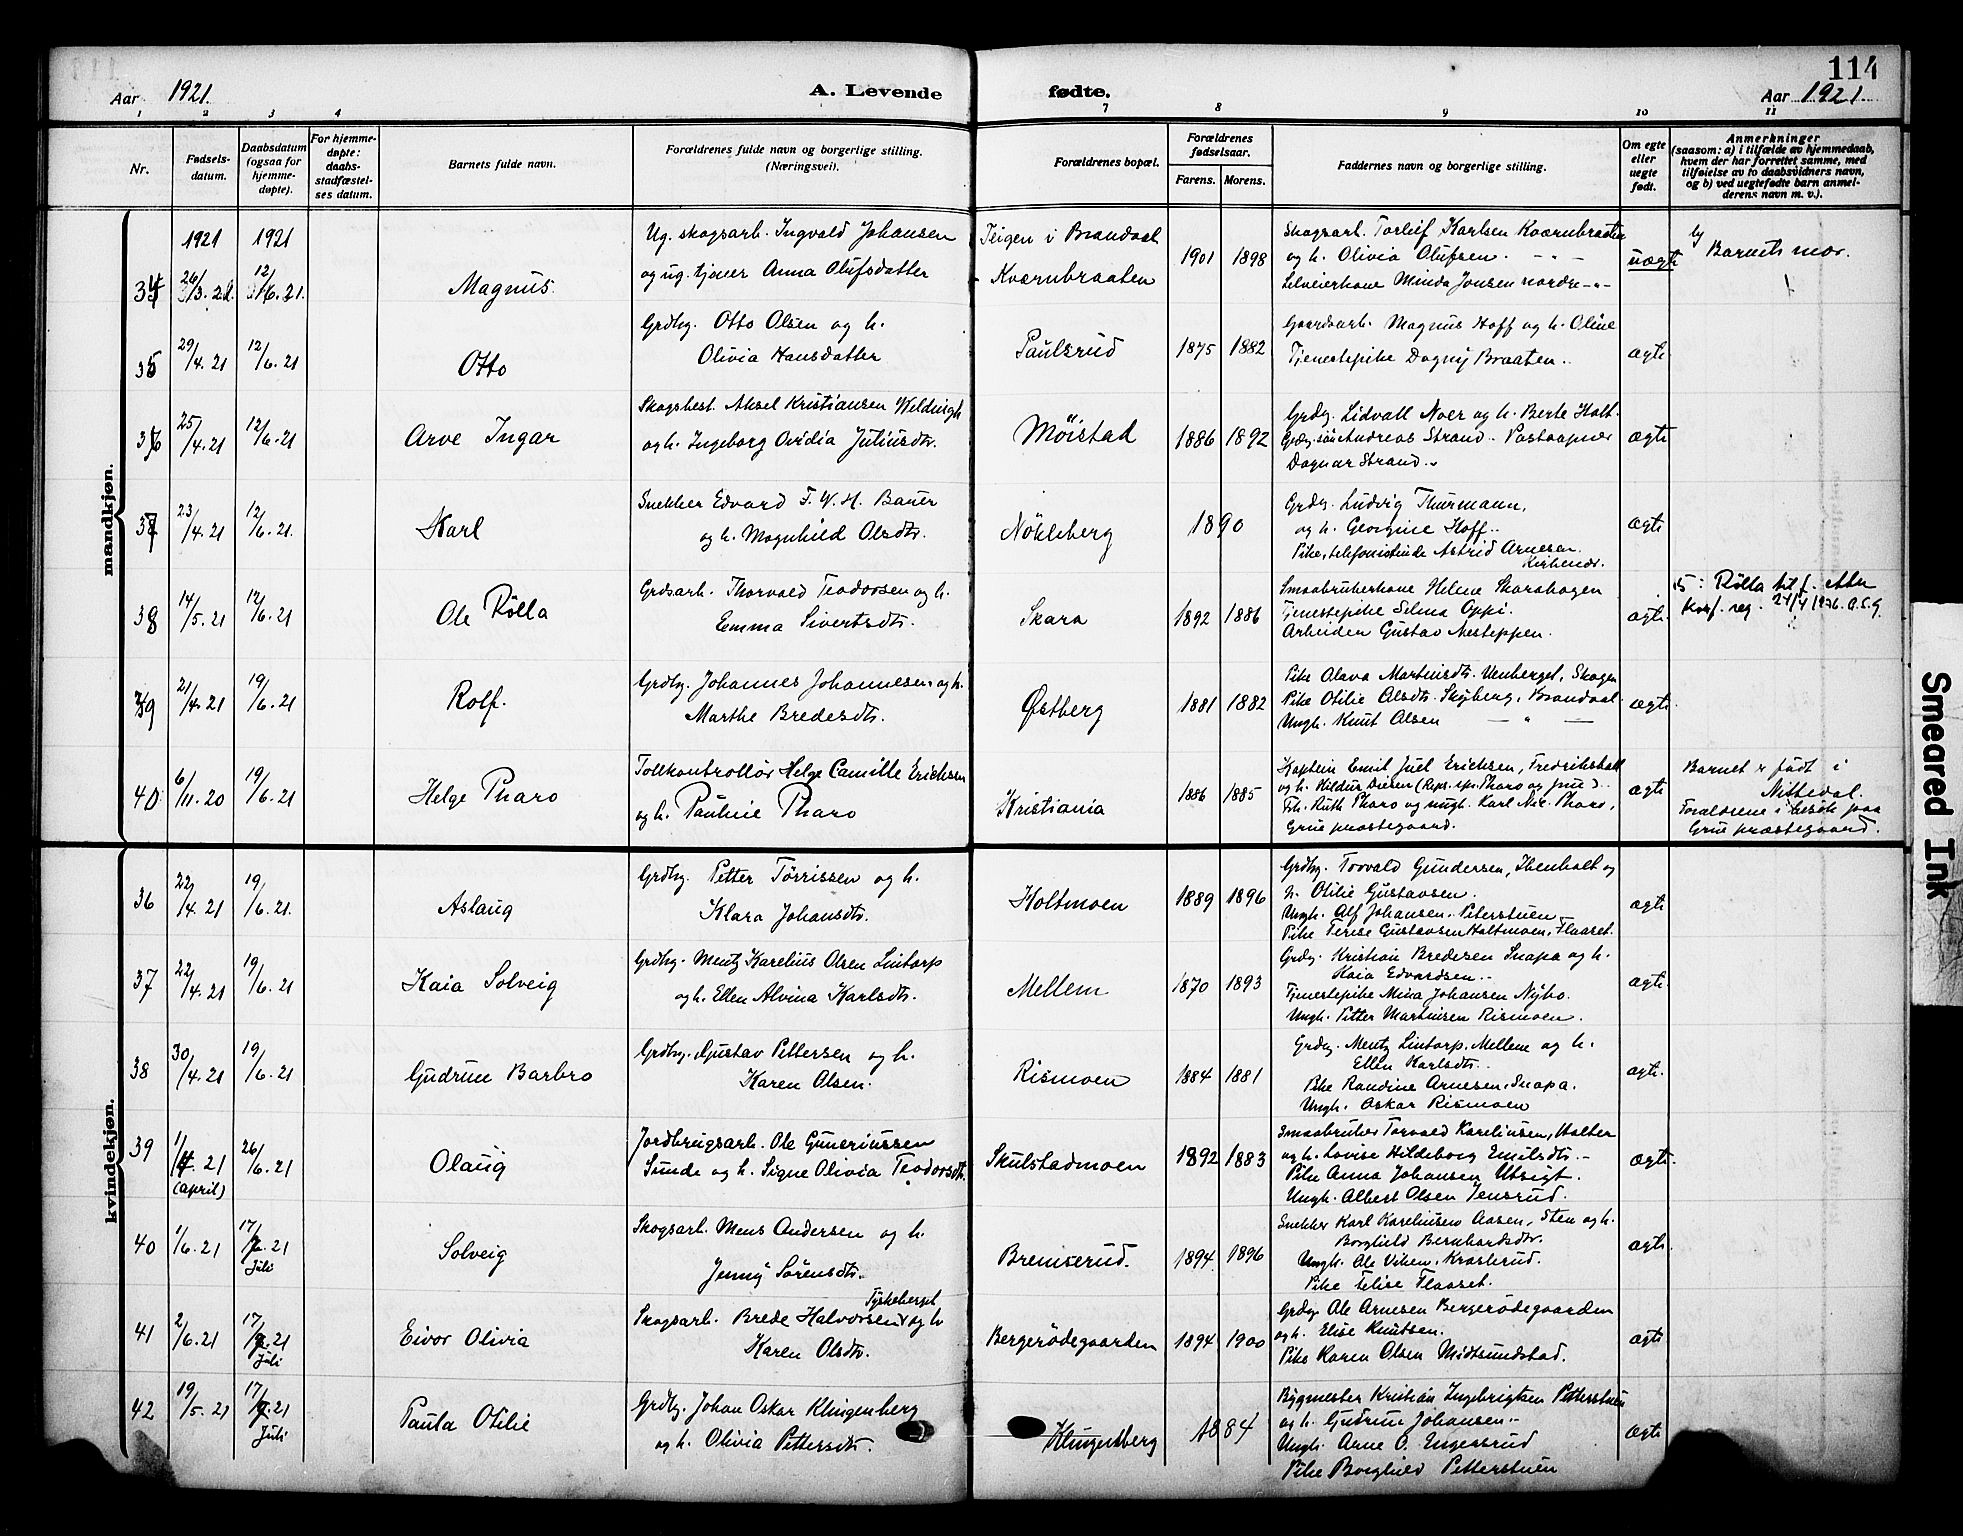 Aar 1921.
A. Levende
fødte.
114
Aar 1921.
1 2 3 4 7 8 9 10 11
Nr.
Fødsels-
datum.
Daabsdatum
(ogsaa for
hjemme-
døpte).
For hjemme-
døpte:
daabs-
stadfæstel-
ses datum.
Barnets fulde navn.
Forældrenes fulde navn og borgerlige stilling.
(Næringsvei).
Forældrenes bopæl.
Forældrenes
fødselsaar.
Farens. Morens.
Faddernes navn og borgerlige stilling.
Om egte
eller
uegte
født.
Anmerkninger
(saasom: a) i tilfælde av hjemmedaab,
hvem der har forrettet samme, med
tilføielse av to daabsvidners navn,
og b) ved uegtefødte barn anmel-
derens navn m. v.).
mandkjøn.
1921 1921
34 26/3.21 12/6.21. Magnus.
Ug. skogsarb. Ingvald Johansen
og ug. tjener Anna Olufsdatter
Teigen i Brandval
Kværnbraaten
1901 1898
Skogsarb. Torleif Karlsen Kværnbraaten
og h. Olivia Olufsen. - " -
Selveierkone Minda Jonsen nordre - " -
uægte
b) Barnets mor.
35 29/4.21 12/6.21 Otto
Grdbg. Otto Olsen og h.
Olivia Hansdatter
Paulsrud
1875 1882
Gaardsarb. Magnus Hoff og h. Oline
Tjenestepike Dagny Braaten..
ægte
36 25/4.21 12/6.21 Arve Ingar
Skogsbest. Aksel Kristiansen Wildingh
og h. Ingeborg Ovidia Juliusdtr.
Möistad
1886 1892
Grdbg. Lidvall Noer og h. Berte Holt.
Grdbg. søn Andreas Strand. Postaapner
Dagnar Strand..
ægte
37 23/4.21 12/6.21. Karl
Snekker Edvard F. W. H. Bauer
og h. Magnhild Olsdtr.
Nökleberg
1890
Grdbg. Ludvig Thurmann,
og h. Georgine Hoff..
Pike, telefonistinde Astrid Arnesen.
Kirkenær.
ægte
38 14/5.21 12/6.21 Ole Rölla
Grdsarb. Thorvald Teodorsen og h.
Emma Sivertsdtr.
Skara
1892 1886
Smaabrukerkone Helene Skarahagen
Tjenestepike Selma Oppi.
Arbeider Gustav Nesteppen.
ægte.
5: Rölla tilf. etter
Korf. reg. 24/4 1976. O.S.G.
39 21/4.21 19/6.21 Rolf.
Grdbg. Johannes Johannesen og h.
Marthe Bredesdtr.
Østberg
1881 1882
Pike Olava Martinsdtr. Uenberget, Skogen
Pike Otilie Olsdtr. Skyberg, Brandval
Ungk. Knut Olsen — " —
ægte.
40. 6/11.20 19/6.21 Helge Pharo
Tollkontrollör Helge Camille Erichsen
og h. Pauline Pharo
Kristiania
1886 1885
Kaptein Emil Juel Erichsen, Fredrikshald
og h. Hildur Dieren (Reps. spr. Pharo og frue)..
Frk. Ruth Pharo og ungk. Karl Nic. Pharo,
Grue præstegaard.
ægte
Barnet er født i
Nittedal.
Forældrene i besøk paa
Grue præstegaard.
kvindekjøn.
36 22/4.21 19/6.21. Aslaug
Grdbg. Petter Tørrissen og h.
Klara Johansdtr.
Holtmoen
1889 1896
Grdbg. Torvald Gundersen, Ibenholt og
h. Otilie Gustavsen.
Ungk. Alf Johansen. Peterstuen
Pike Terese Gustavsen Holtmoen, Flaaset.
ægte
37 22/4.21 19/6.21 Kaia Solveig
Grdbg. Mentz Karelius Olsen Lintorp
og h. Ellen Alvina Karlsdtr.
Mellem
1870 1893
Grdbg. Kristian Bredesen Snapa og h.
Kaia Edvardsen..
Tjenestepike Mina Johansen Nybo.
Ungk. Petter Martinsen Rismoen.
ægte
38 30/4.21 19/6.21 Gudrun Barbro
Grdbg. Gustav Pettersen og h.
Karen Olsen.
Rismoen
1884 1881
Grdbg. Mentz Lintorp. Mellem og h.
Ellen Karlsdtr..
Pike Randine Arnesen. Snapa.
Ungk. Oskar Rismoen
ægte.
39 1/4 21 (april) 26/6.21 Olaug
Jordbrugsarb. Ole Guneriussen
Sunde og h. Signe Olivia Teodorsdtr.
Skulstadmoen
1892 1883
Smaabruker Torvald Kareliusen, Holter
og h. Lovise Hildeborg Emilsdtr. -
Pike Anna Johansen Utsigt.
Ungk. Albert Olsen Jensrud.
ægte.
40 1/6.21 17/7.21 Juli Solveig
Skogsarb. Mens Andersen og h.
Jenny Sørensdtr.
Bremserud.
1894. 1896
Snekker Karl Kareliusen Aasen, Sten og h.
Borghild Bernhardsdtr.
Ungk. Ole Viken. Krosterud.
Pike Telise Flaaset.
ægte.
41 2/6.21 17/7.21 Juli Eivor Olivia
Tyskeberget
Skogsarb. Brede Halvorsen og h
Karen Olsdtr.
Bergerödegaarden
1894 1900
Grdbg Ole Arnesen Bergerödegaarden
og h. Elise Knutsen.
Pike Karen Olsen Midtsundstad.
ægte
42 19/5.21 17/7.21 Juli Paula Otilie
Grdbg. Johan Oskar Klingenberg
og h. Olivia Pettersdtr.
Klingenberg
1884
Bygmester Kristian Ingebrigtsen Petterstuen
og h. Gudrun Johansen..
Ungk. Arne O. Engesrud
Pike Borghild Petterstuen
ægte
Smeared Ink